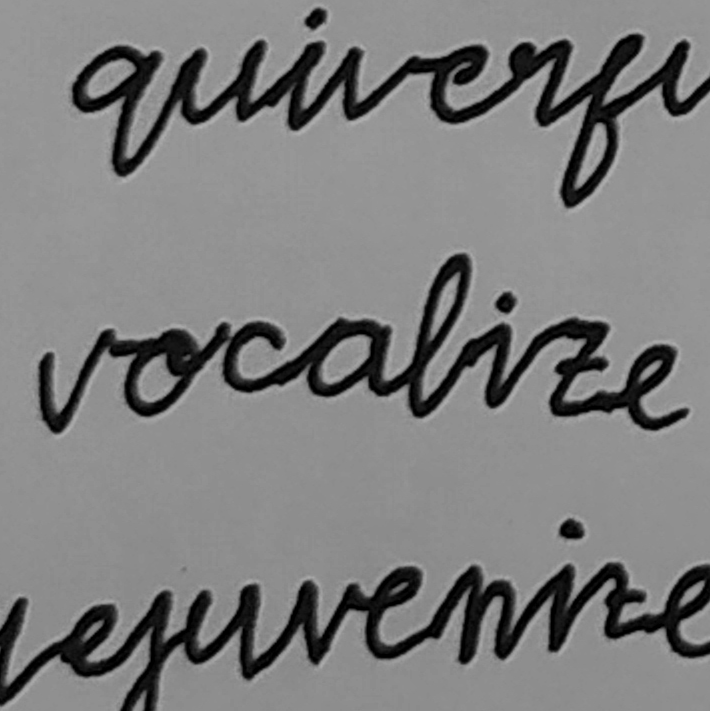 quiverfu
vocalize
rejuvenize